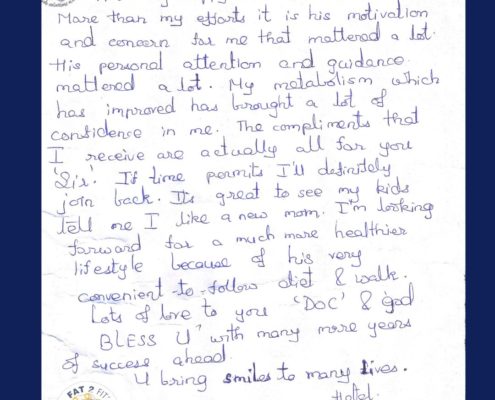 More than my efforts it is his motivation
and concern for me that mattered a lot.
His personal attention and guidance
mattered a lot. My metabolism which
has improved has brought a lot of
confidence in me. The compliments that
I receive are actually all for you
'Sir'. If time permits I'll definitely
join back. Its great to see my kids
tell me I like a new mom. I'm looking
forward for a much more healthier
lifestyle because of his very
convenient to follow diet & walk.
Lots of love to you 'DOC' & god
BLESS U' with many more years
of success ahead
U bring smiles to many lives.
FAT 2 FIT